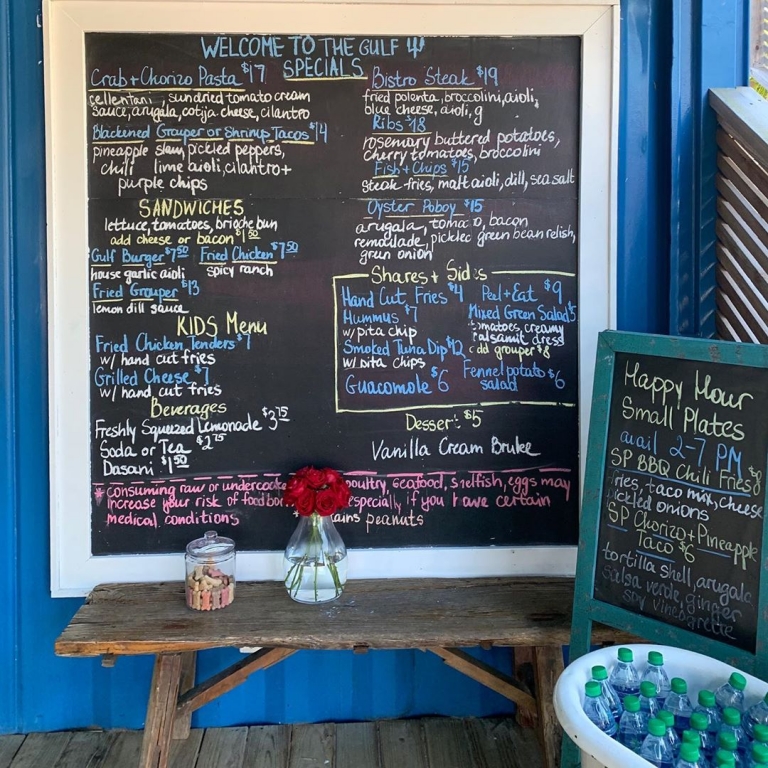 WELCOME TO THE GULF
SPECIALS
Crab + Chorizo Pasta $17
cellentani, sundried tomato cream
sauce, arugala, cotija cheese, cilantro
Blackened Grouper or Shrimp Tacos $14
pineapple slaw, pickled peppers,
chili lime aioli, cilantro +
purple chips
Bistro Steak $19
fried polenta, broccolini, aioli,
blue cheese, aioli, g
Ribs $18
rosemary buttered potatoes,
cherry tomatoes, broccolini
Fish + Chips $15
steak fries, malt aioli, dill, sea salt
Oyster Poboy $15
arugala, tomato, bacon
remoulade, pickled green bean relish,
green onion
SANDWICHES
lettuce, tomatoes, brioche bun
add cheese or bacon $1.50
Gulf Burger $7.50 Fried Chicken $7.50
house garlic aioli spicy ranch
Fried Grouper $13
lemon dill sauce
KIDS Menu
Fried Chicken Tenders $7
w/ hand cut fries
Grilled Cheese $7
w/ hand cut fries
Beverages
Freshly Squeezed Lemonade $3.75
Soda or Tea $2.75
Dasani $1.50
Shares + Sides
Hand Cut Fries $4
Hummus $7
w/ pita chip
Smoked Tuna Dip $12
w/ pita chips
Guacomole $6
Peel + Eat $9
Mixed Green Salad $5
tomatoes, creamy
balsamic dress
add grouper $8
Fennel potato $6
salad
Dessert $5
Vanilla Cream Brulee
* consuming raw or undercooked poultry, seafood, shelfish, eggs may
increase your risk of food especially if you have certain
medical conditions peanuts
Happy Hour
Small Plates
avail 2-7 PM
SP BBQ Chili Fries $8
fries, taco mix, cheese
pickled onions
SP Chorizo + Pineapple
Taco $6
tortilla shell, arugala
salsa verde, ginger
soy vinegarette